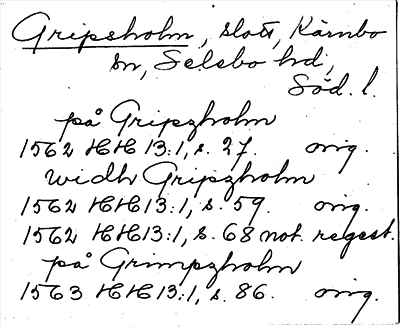 Gripsholm, slott, Kärnbo
sn, Selebo hd,
Söd. l.
på Gripzholm
1562 HH 13:1, s. 27. orig.
widh Gripzholm
1562 HH 13:1, s. 59. orig.
1562 HH 13:1, s. 68 not. regest.
på Grimpzholm
1563 HH 13:1, s. 86. orig.